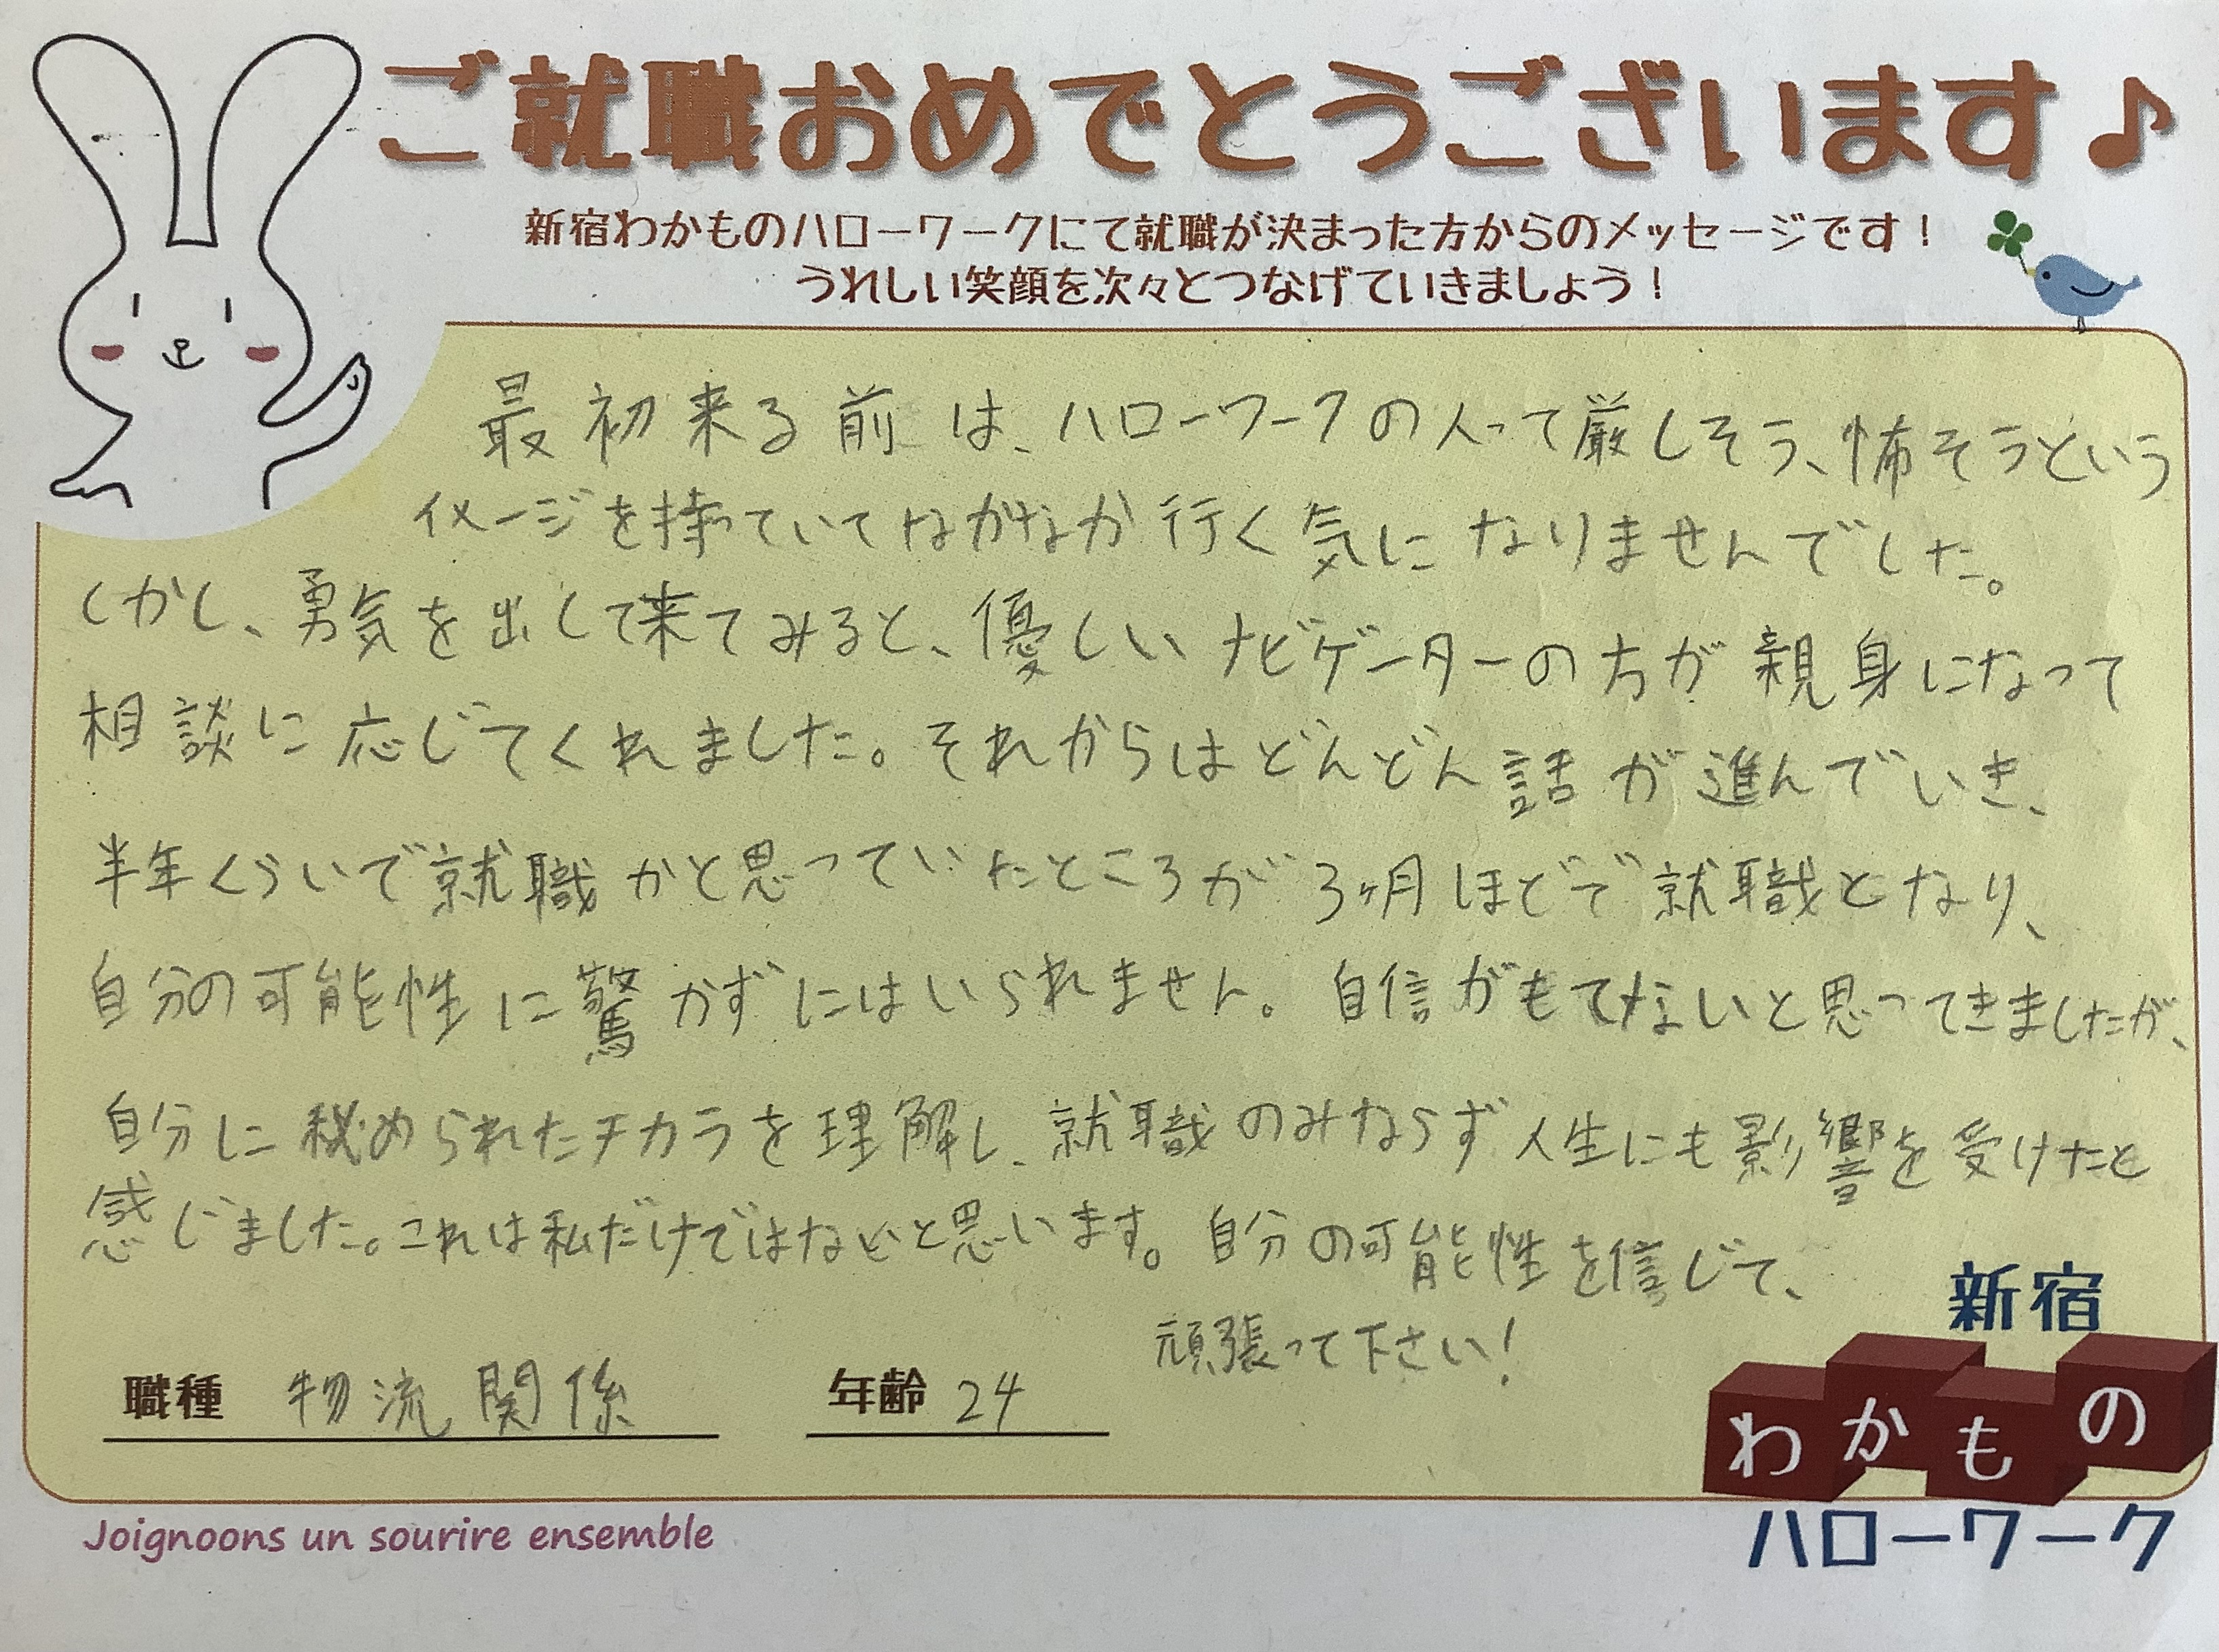 ご就職おめでとうございます♪
新宿わかものハローワークにて就職が決まった方からのメッセージです！
うれしい笑顔を次々とつなげていきましょう！
最初来る前は、ハローワークの人って厳しそう、怖そうという
イメージを持っていてなかなか行く気になりませんでした。
しかし、勇気を出して来てみると、優しいナビゲーターの方が親身になって
相談に応じてくれました。それからはどんどん話が進んでいき、
半年くらいで就職かと思っていたところが3ヶ月ほどで就職となり、
自分の可能性に驚かずにはいられません。自信がもてないと思ってきましたが、
自分に秘められたチカラを理解し、就職のみならず人生にも影響を受けたと
感じました。これは私だけではないと思います。自分の可能性を信じて、
頑張って下さい！
職種 物流関係 年齢 24
新宿
わかもの
ハローワーク
Joignoons un sourire ensemble